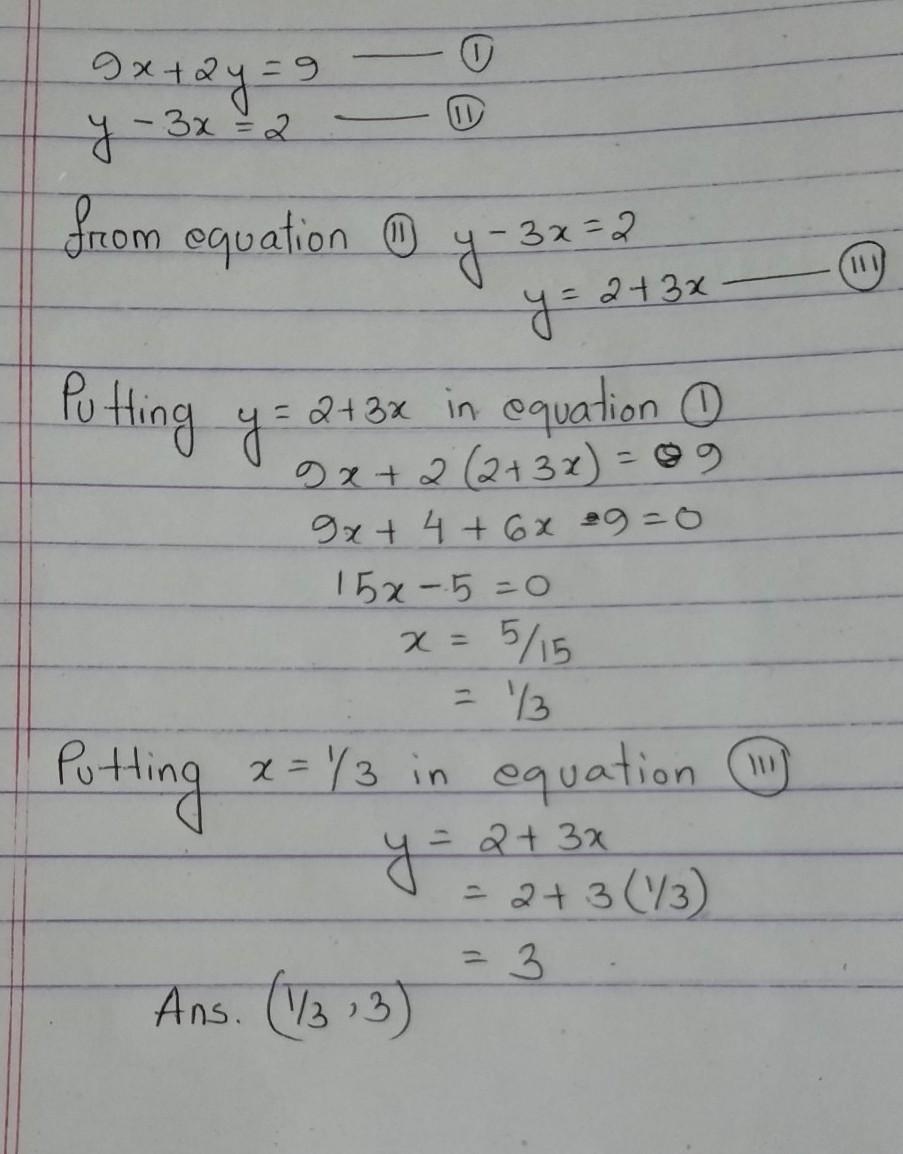 9x + 2y = 9 —— Ⓘ
y - 3x = 2 —— ⓘⓘ
from equation ⓘⓘ y - 3x = 2
y = 2 + 3x —— ⓘⓘⓘ
Putting y = 2 + 3x in equation Ⓘ
9x + 2 (2 + 3x) = 9
9x + 4 + 6x - 9 = 0
15x - 5 = 0
x = 5/15
= 1/3
Putting x = 1/3 in equation ⓘⓘⓘ
y = 2 + 3x
= 2 + 3 (1/3)
= 3
Ans. (1/3 , 3)